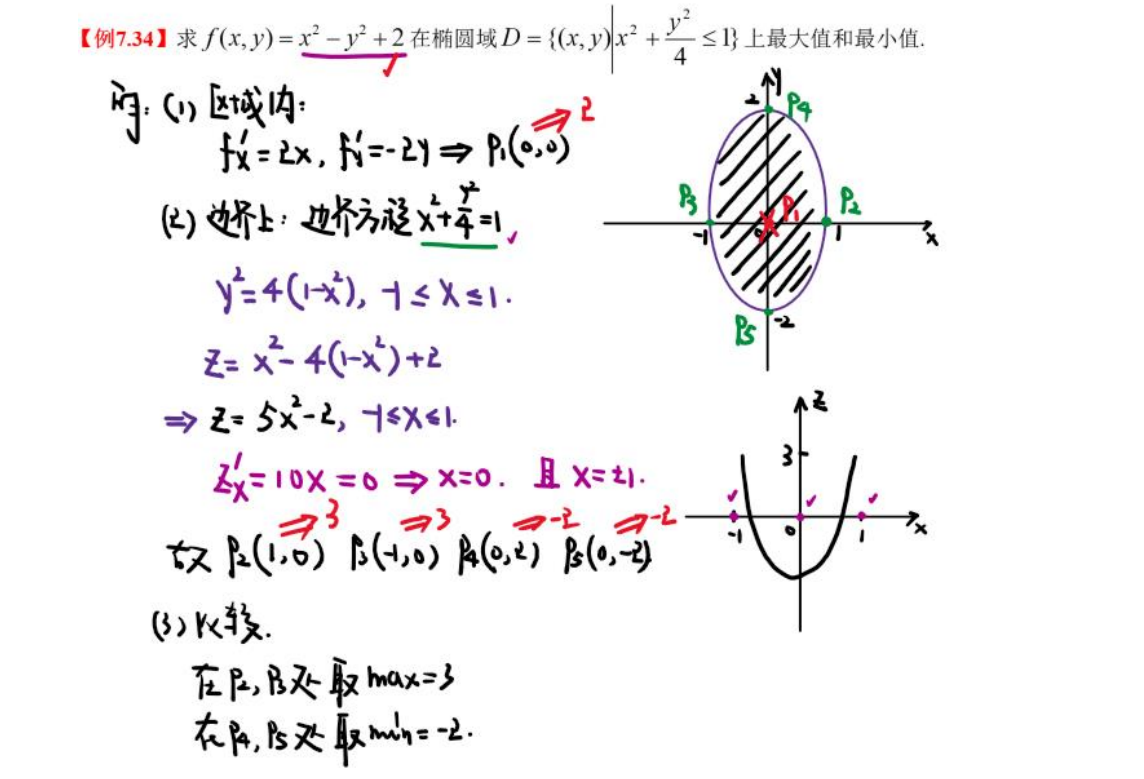 【例7.34】求 f(x, y) = x² − y² + 2 在椭圆域 D = {(x, y)|x² + y²/4 ≤ 1} 上最大值和最小值.
解: (1) 区域内:
f'x = 2x, f'y = -2y ⇒ P₁(0,0) ⇒ 2
(2) 边界上: 边界方程 x² + y²/4 = 1
y² = 4(1-x²), -1 ≤ x ≤ 1.
z = x² - 4(1-x²) + 2
⇒ z = 5x² - 2, -1 ≤ x ≤ 1.
z'x = 10x = 0 ⇒ x = 0. 且 x = ±1.
⇒ 3 ⇒ 3 ⇒ -2 ⇒ -2
故 P₂(1,0) P₃(-1,0) P₄(0,2) P₅(0,-2)
(3) 比较.
在 P₂, P₃ 处取 max = 3
在 P₄, P₅ 处取 min = -2.
y
2 P₄
P₃ P₁ P₂
-1 0 1 x
P₅ -2
z
3
-1 0 1 x